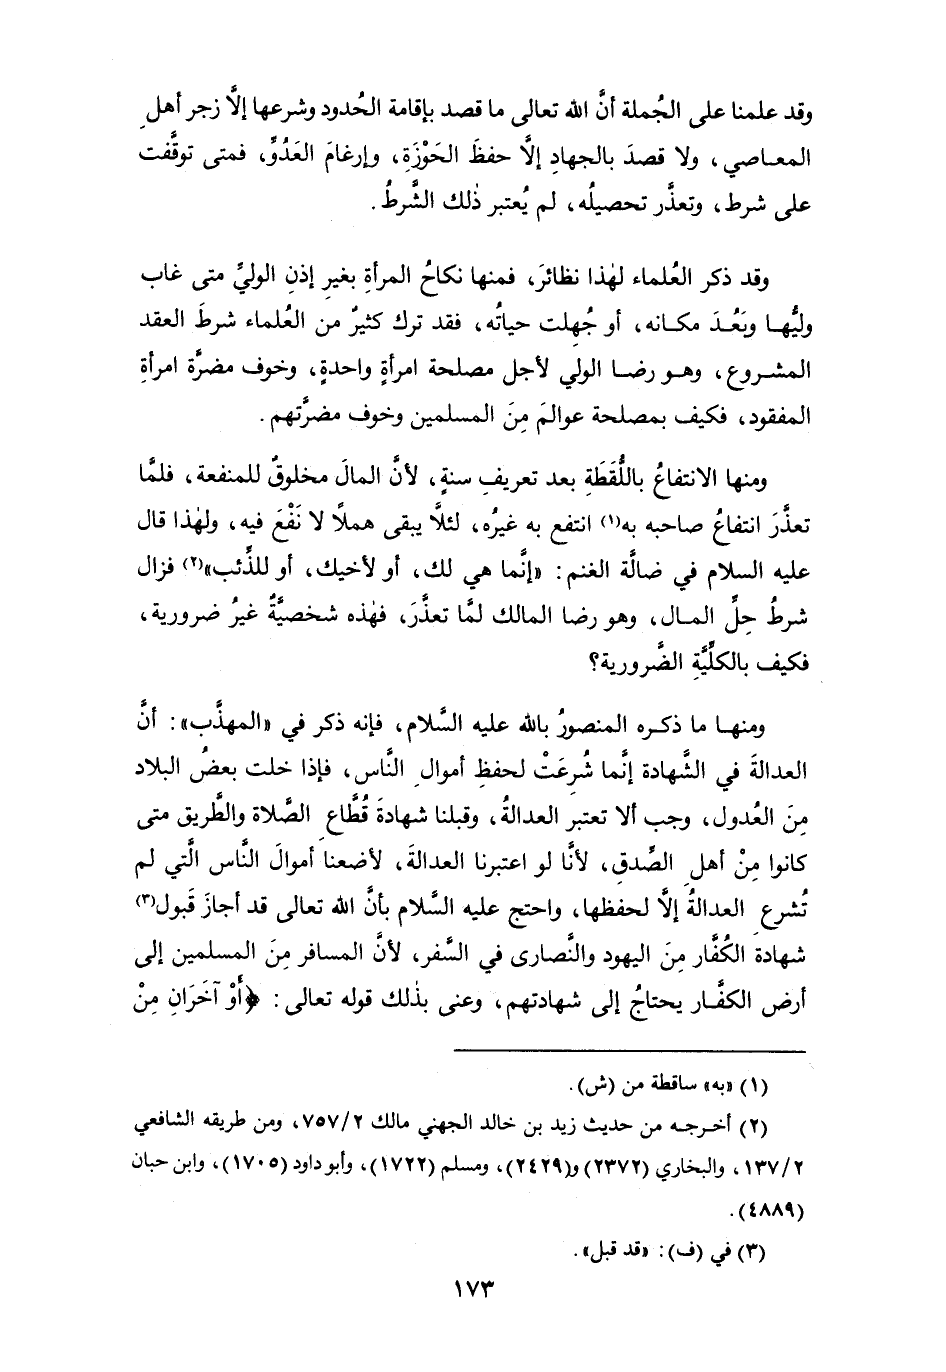 وقد علمنا على الجُملة أنَّ الله تعالى ما قصد بإقامة الحُدود وشرعها إلَّا زجر أهلِ
المعاصي، ولا قصدَ بالجهادِ إلَّا حفظَ الحَوْزَةِ، وإرغامَ العَدُوِّ، فمتى توقَّفت
على شرط، وتعذَّر تحصيلُه، لم يُعتبر ذٰلك الشَّرطُ.
وقد ذكر العُلماء لهٰذا نظائرَ، فمنها نكاحُ المرأةِ بغيرِ إذنِ الوليِّ متى غاب
وليُّها وبَعُدَ مكانه، أو جُهِلت حياتُه، فقد ترك كثيرٌ من العُلماء شرطَ العقد
المشروع، وهو رضا الولي لأجل مصلحة امرأةٍ واحدةٍ، وخوف مضرَّة امرأةِ
المفقود، فكيف بمصلحة عوالمَ مِنَ المسلمين وخوف مضرَّتهم.
ومنها الانتفاعُ باللُّقَطَةِ بعد تعريفِ سنةٍ، لأنَّ المالَ مخلوقٌ للمنفعة، فلمَّا
تعذَّرَ انتفاعُ صاحبه به(١) انتفع به غيرُه، لئلَّا يبقى هملًا لا نَفْعَ فيه، ولهٰذا قال
عليه السلام في ضالَّة الغنم: «إنَّما هي لك، أو لأخيك، أو للذِّئب»(٢) فزال
شرطُ حِلِّ المال، وهو رضا المالك لمَّا تعذَّرَ، فهٰذه شخصيَّةٌ غيرُ ضرورية،
فكيف بالكلِّيَّةِ الضَّرورية؟
ومنها ما ذكره المنصورُ بالله عليه السَّلام، فإنه ذكر في «المهذَّب»: أنَّ
العدالةَ في الشَّهادة إنَّما شُرِعَتْ لحفظِ أموالِ النَّاس، فإذا خلت بعضُ البلاد
مِنَ العُدول، وجب ألا تعتبر العدالةُ، وقبلنا شهادةَ قُطَّاعِ الصَّلاة والطَّريق متى
كانوا مِنْ أهلِ الصِّدق، لأنَّا لو اعتبرنا العدالةَ، لأضعنا أموالَ النَّاس الَّتي لم
تُشرعِ العدالةُ إلَّا لحفظها، واحتج عليه السَّلام بأنَّ الله تعالى قد أجازَ قَبول(٣)
شهادة الكُفَّار مِنَ اليهود والنَّصارى في السَّفر، لأنَّ المسافر مِنَ المسلمين إلى
أرض الكفَّار يحتاجُ إلى شهادتهم، وعنى بذٰلك قوله تعالى: ﴿أَوْ آخَرَانِ مِنْ
(١) «به» ساقطة من (ش).
(٢) أخرجه من حديث زيد بن خالد الجهني مالك ٧٥٧/٢، ومن طريقه الشافعي
١٣٧/٢، والبخاري (٢٣٧٢) و(٢٤٢٩)، ومسلم (١٧٢٢)، وأبو داود (١٧٠٥)، وابن حبان
(٤٨٨٩).
(٣) في (ف): «قد قبل».
١٧٣